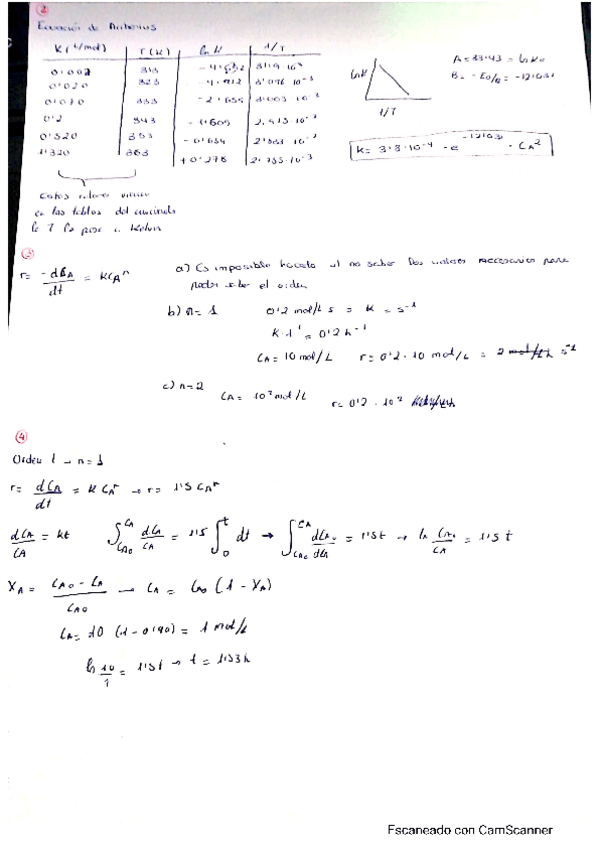 ②
Ecuación de Arrhenius
K (L/mol) T (K) ln K 1/T
0'020 323 3'096 10⁻³
0'070 333 -2'655 3'003 10⁻³
0'2 343 -1'609 2'915·10⁻³
0'520 353 -0'654 2'833 10⁻³
1'320 363 +0'278 2'755·10⁻³
ln K
1/T
Estos valores
en las tablas del
la T la pase a Kelvin
③
r = -dCA/dt = KCAⁿ
a) Es imposible hacerlo al no saber los valores necesarios para
poder saber el orden
b) n = 1 0'2 mol/L s = K = s⁻¹
K·1 = 0'2 h⁻¹
CA = 10 mol/L r = 0'2 · 10 mol/L =
c) n = 2 CA = 10² mol/L r = 0'2 · 10²
④
Orden 1 → n = 1
r = dCA/dt = K CAⁿ → r = 1'5 CAⁿ
dCA/CA = kt ∫ dCA/CA = 1'5 ∫ dt → = 1'5t → ln CA0/CA = 1'5 t
XA = (CA0 - CA)/CA0 → CA = CA0 (1 - XA)
CA = 10 (1 - 0'90) = 1 mol/L
ln 10/1 = 1'5t → t = 1'53 h
Escaneado con CamScanner